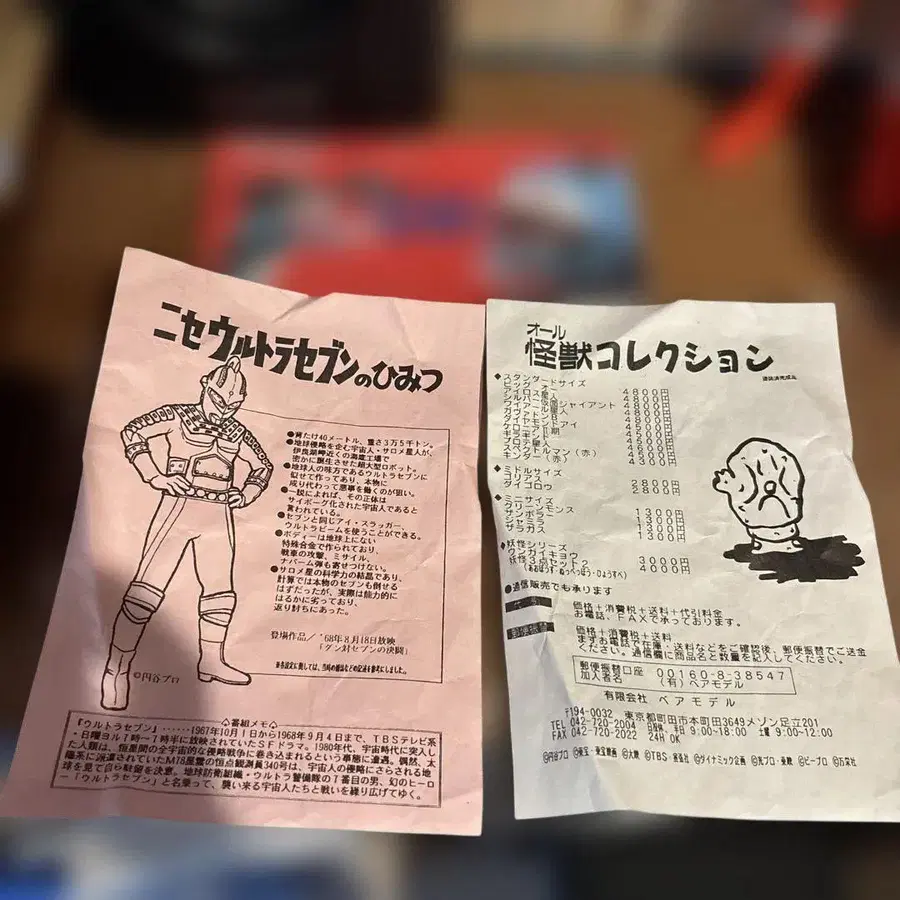 ニセウルトラセブンのひみつ
●背たけ40メートル、重さ3万5千トン。
●地球侵略を企む宇宙人・サロメ星人が、
伊良湖岬近くの海底工場で
密かに誕生させた超大型ロボット。
●地球人の味方であるウルトラセブンに
似せて作ってあり、本物に
成り代わって悪事を働くのが狙い。
●一説によれば、その正体は
サイボーグ化された宇宙人であると
言われている。
●セブンと同じアイ・スラッガー、
ウルトラビームを使うことができる。
●ボディーは地球上にない
特殊合金で作られており、
戦車の攻撃、ミサイル、
ナパーム弾も寄せつけない。
●サロメ星の科学力の結晶であり、
計算では本物のセブンも倒せる
はずだったが、実際は能力的に
はるかに劣っており、
返り討ちにあった。
登場作品／'68年8月18日放映
「ダン対セブンの決闘」
©円谷プロ
♤番組メモ♤
『ウルトラセブン』……1967年10月1日から1968年9月4日まで、TBSテレビ系
・日曜ヨル7時―7時半に放映されていたSFドラマ。1980年代、宇宙時代に突入し
た人類は、恒星間の全宇宙的な侵略戦争に巻き込まれるという事態に遭遇。偶然、太
陽系に派遣されていたM78星雲の恒点観測員340号は、宇宙人の侵略にさらされる地
球を見て自ら駐留を決意。地球防衛組織・ウルトラ警備隊の7番目の男、幻のヒーロ
ー「ウルトラセブン」と名乗って、襲い来る宇宙人たちと戦いを繰り広げてゆく。
オール
怪獣コレクション
塗装済完成品
◆スタンダードサイズ
ビッグオー 4800円
◆ミドルサイズ
ゴリアス 2800円
ダイゴロウ 2800円
◆ミニサイズ
グリーンモンス 1300円
サンボラー 1300円
ジャミラ 1300円
ザラガス 1300円
◆妖怪シリーズ
ウンガイキョウ 3000円
妖怪3点セット2 4000円
(あおぼうず・ぬっぺっぽう・ひょうすべ)
●通信販売でも承ります
代引
価格＋消費税＋送料＋代引料金
お電話、FAXで承っております。
郵便振替
価格＋消費税＋送料
まずお電話で在庫・送料などをご確認後、郵便振替でご送金
ください。通信欄に商品名と数量を記入してください。
郵便振替口座 00160-8-38547
加入者名 (有)ベアモデル
有限会社 ベアモデル
〒194-0032 東京都町田市本町田3649メゾン足立201
TEL 042-720-2004 月-金 9:00-18:00 土曜 9:00-12:00
FAX 042-720-2022 24H OK